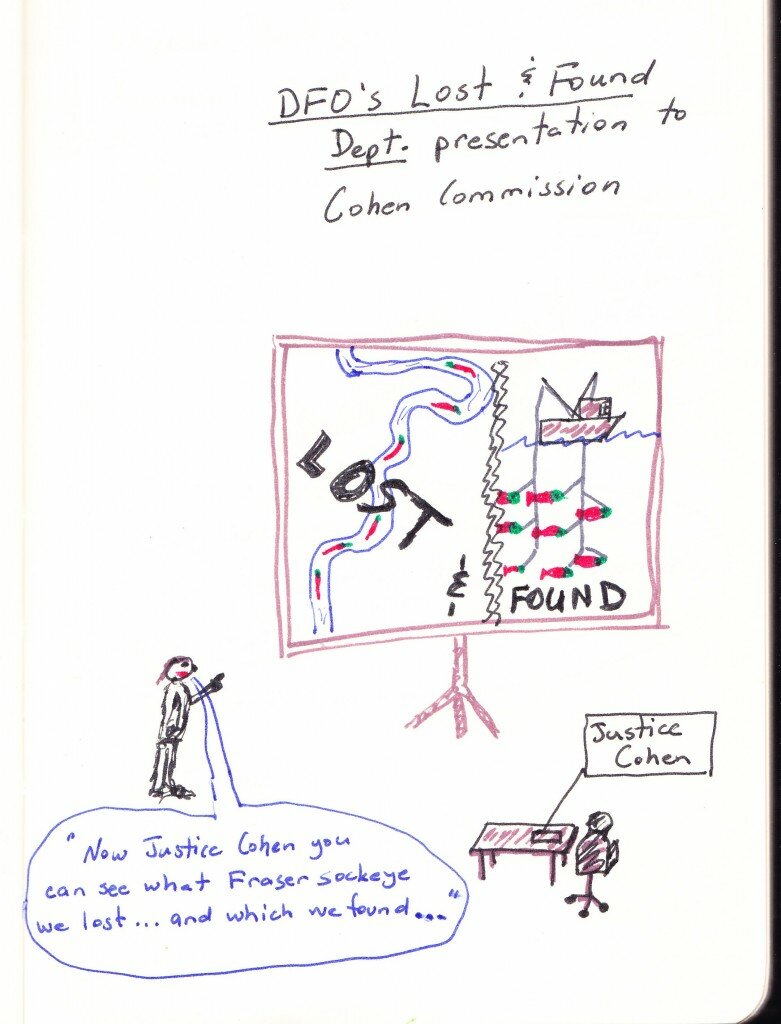 DFO's Lost & Found
Dept. presentation to
Cohen Commission
LOST
&
FOUND
Justice
Cohen
"Now Justice Cohen you
can see what Fraser sockeye
we lost... and which we found..."